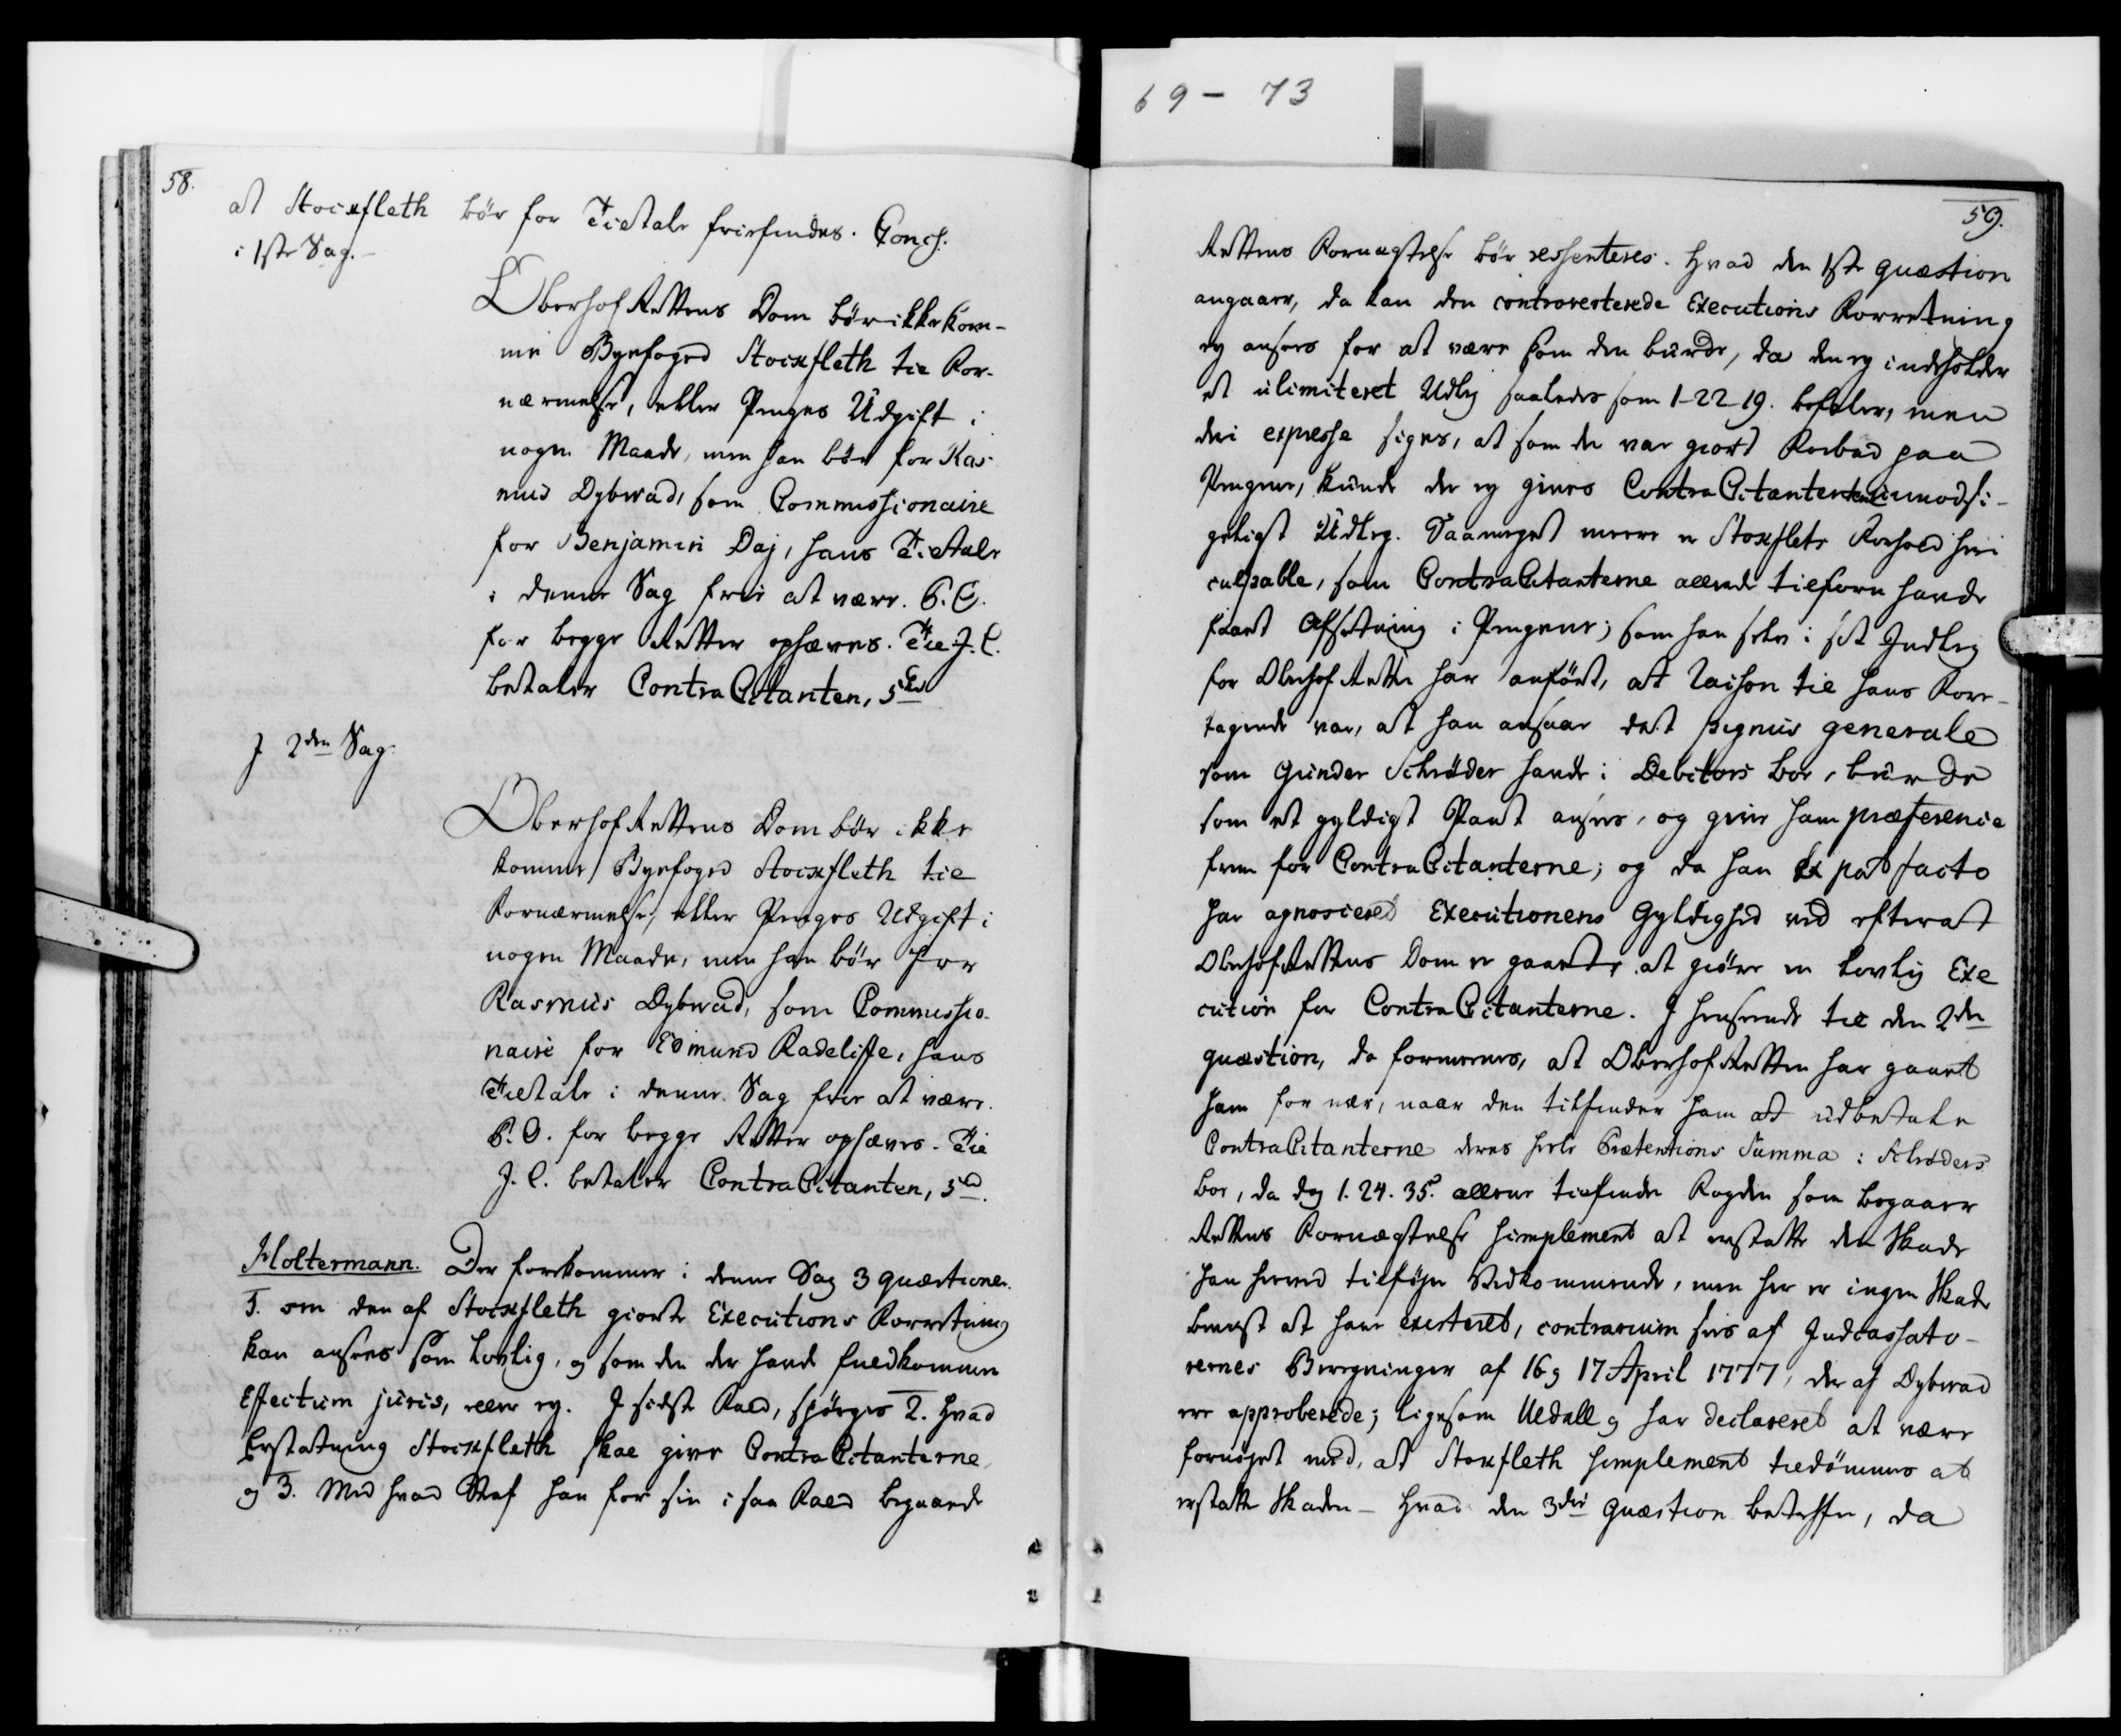 69 - 73
58.
at Stoixfleth bör for Tiltale friefindes. Concl.
i 1ste Sag. -
OberhofRettens Dom bör ikke kom-
me Byefoged Stoixfleth til For-
nærmelse, eller Penges Udgift i
nogen Maade, men han bör for Ras-
mus Dybwad, som Commissionaire
for Benjamin Daj, hans Tiltale
i denne Sag frie at være. P. O.
for begge Retter ophæves. Til J. C.
betaler ContraCitanten, 5 rd
I 2den Sag.
OberhofRettens Dom bör ikke
komme Byefoged Stoixfleth til
Fornærmelse, eller Penges Udgift i
nogen Maade, men han bör for
Rasmus Dybwad, som Commissio-
naire for Edmund Radeliffe, hans
Tiltale i denne Sag frie at være.
P. O. for begge Retter ophæves. Til
J. C. betaler ContraCitanten, 5 rd.
Holtermann. Der forekommer i denne Sag 3 quæstioner.
1. om den af Stoixfleth giorte Executions Forretning
kan ansees som lovlig, og som den der havde fuldkommen
Effectum juris, eller ey. I sidste Fald, spörges 2. hvad
Erstatning Stoixfleth skal give ContraCitanterne,
og 3. Med hvad Straf han for sin i saa Fald begaaede
59.
Rettens Fornægtelse bör ressenteres. Hvad den 1ste quæstion
angaaer, da kan den controverterede Executions Forretning
ey ansees for at være som den burde, da den ey indeholder
et ulimiteret Udlæg saaledes som 1-22-19. befaler, men
deri expresse siges, at som der var giort Forbud paa
Pengene, kunde der ey gives ContraCitanterne uimodsi-
geligt Udlæg. Saameget meere er Stoxflets Forhold heri
culpable, som ContraCitanterne allerede tilforn havde
faaet Afsetning i Pengene; som han selv i sit Indlæg
for OberhofRetten har anfört, at raison til hans Fore-
tagende var, at han ansaae det pignus generale
som Gunder Schröder havde i Debitors Boe, burde
som et gyldigt Pant ansees, og give ham præference
frem for ContraCitanterne; og da han ex post facto
har agnosceret Executionens Gyldighed ved efter at
OberhofRettens Dom er gaaet, at giöre en lovlig Exe
cution for ContraCitanterne. I henseende til den 2den
quæstion, da formeenes, at OberhofRetten har gaaet
ham for nær, naar den tilfinder ham at udbetale
ContraCitanterne deres heele Prætentions Summa i Schröders
Boe, da dog 1. 24. 35. allene tilfinder Fogden som begaaer
Rettens Fornægtelse simplement at erstatte den Skade
han herved tilföjer Vedkommende, men her er ingen Skade
beviist at have existeret, contrarium sees af Incassato-
rernes Beregninger af 16 og 17 April 1777, der af Dybwad
ere approberede; ligesom Uldall og har declareret at være
fornöjet med, at Stoxfleth simplement tildömmes at
erstatte Skaden - Hvad den 3die Quæstion betreffer, da